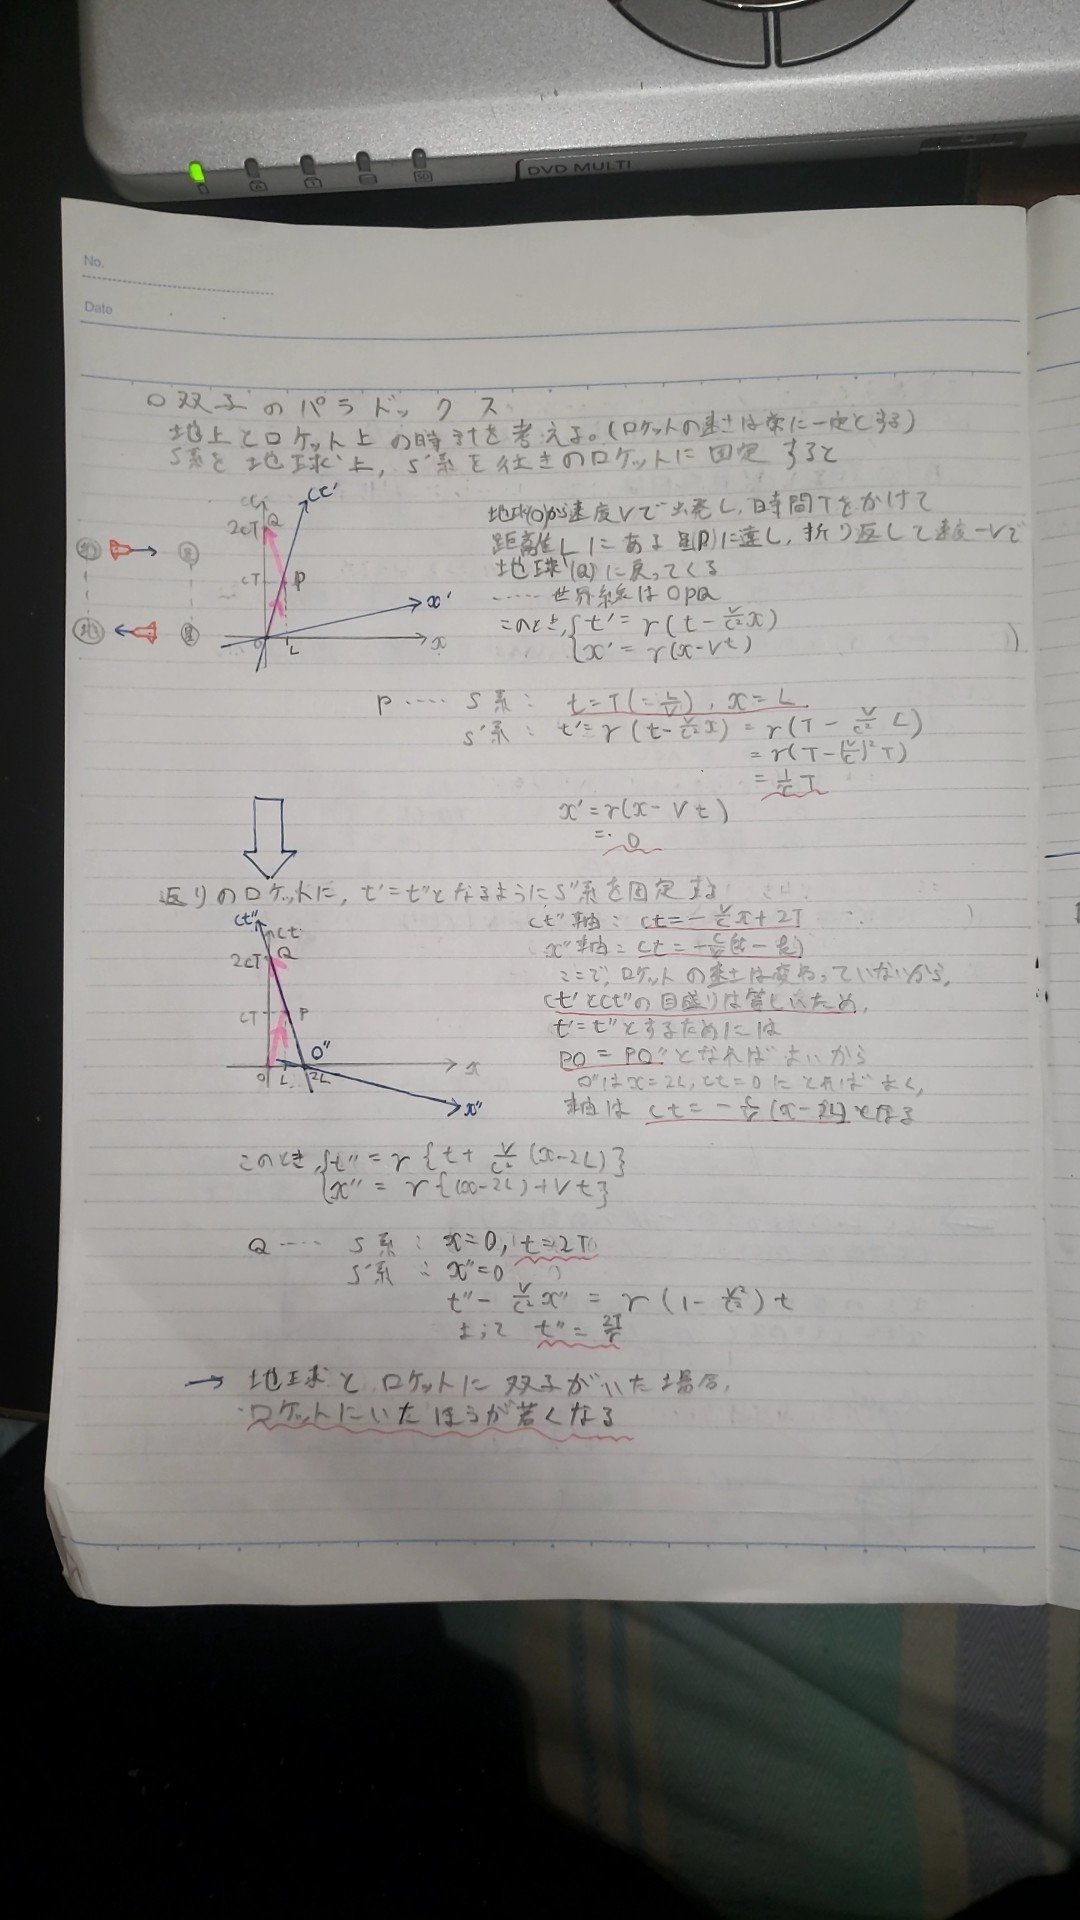 DVD MULTI
SD
No.
Date
□ 双子のパラドックス
地上とロケット上の時計を考える。(ロケットの速さは常に一定とする)
S系を地球上, S'系を往きのロケットに固定すると
ct
ct'
2cT
Q
cT
P
x'
x
0
L
地
星
地
星
地球(O)から速度Vで出発し, 時間Tをかけて
距離Lにある星(P)に達し, 折り返して速度-Vで
地球(Q)に戻ってくる
…… 世界線はOPQ
このとき, { t' = γ(t - V/c² x)
{ x' = γ(x-Vt)
P …… S系 : t=T(=L/V), x=L
S'系 : t'=γ(t-V/c² x) = γ(T - V/c² L)
= γ(T-(V/c)²T)
= 1/γ T
x'=γ(x-Vt)
= 0
返りのロケットに, t'=t''となるようにS''系を固定する
ct''
ct
2cT
Q
cT
P
O''
0
L
2L
x
x''
ct''軸:
x''軸:
ここで, ロケットの速さは変わっていないから,
ct'とct''の目盛りは等しいため,
t'=t''とするためには
PO = PO''となればよいから
O''はx=2L, ct=0にとればよく,
軸は ct = - (x-2L)となる
このとき, { t'' = γ{t + V/c² (x-2L)}
{ x'' = γ{(x-2L)+Vt}
Q …… S系 : x=0, t=2T
S''系 : x''=0
t'' - V/c² x'' = γ(1 - V²/c²)t
よって t'' = 2T/γ
→ 地球とロケットに双子がいた場合,
ロケットにいたほうが若くなる